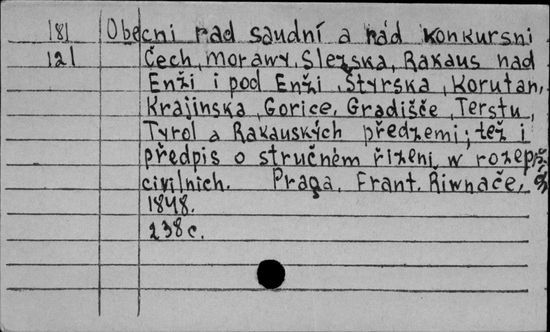 181 Obecni rad saudní a řád konkursni
121 Čech, Morawy, Slezska, Rakaus nad
Enži i pod Enži, Štyrska, Korutan,
Krajinska, Gorice, Gradišče, Terstu,
Tyrol a Rakauských předzemi; též i
předpis o stručném řizeni w rozepř
civilnich. Praga, Frant. Riwnače,
1848.
238 c.